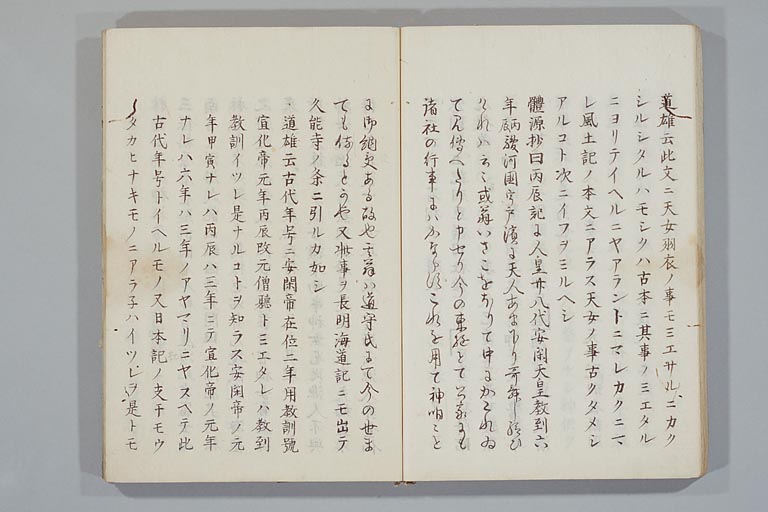 道雄云此文ニ天女羽衣ノ事モミエサルニカク
シルシタルハモシクハ古本ニ其事ノミエタル
ニヨリテイヘルニヤアラントニマレカクニマ
レ風土記ノ本文ニアラス天女ノ事古クタメシ
アルコト次ニイフヲミルヘシ
體源抄曰丙辰記に人皇廿八代安閑天皇教到六
年丙辰駿河國宇戸濱に天人あまくたり哥舞し給ひ
けれは云々或翁いさこをほりて中にかくれゐ
て見傳へたりと申せり今の東遊とて公家にも
諸社の行事には必なり
これを用て神明こと
に御納受ある故や其翁は道守氏にて今の世ま
ても侍るとかや又此事ヲ長明海道記ニモ出テ
久能寺ノ条ニ引ルカ如シ
道雄云古代年号ニ安閑帝在位二年用教訓號
宣化帝元年丙辰改元僧聽トミエタレハ教到
教訓イツレ是ナルコトヲ知ラス安閑帝ノ元
年甲寅ナレハ丙辰ハ三年ニテ宣化帝ノ元年
ナレハ六年ハ三年ノアヤマリニヤスヘテ此
古代年号トイヘルモノ又日本記ノ支干モウ
タカヒナキモノニアラ子ハイツレヲ是トモ